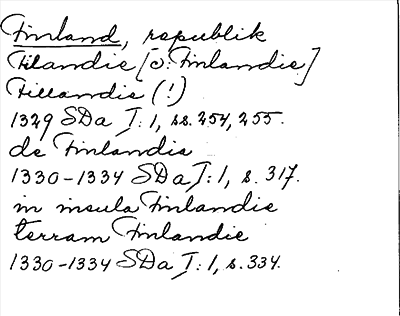 Finland, republik
Filandie [ɔ: Finlandie]
Fillandie (!)
1329 SDa I:1, ss. 254, 255.
de Finlandia
1330-1334 SDa I:1, s. 317.
in insula Finlandie
terram Finlandie
1330-1334 SDa I:1, s. 334.